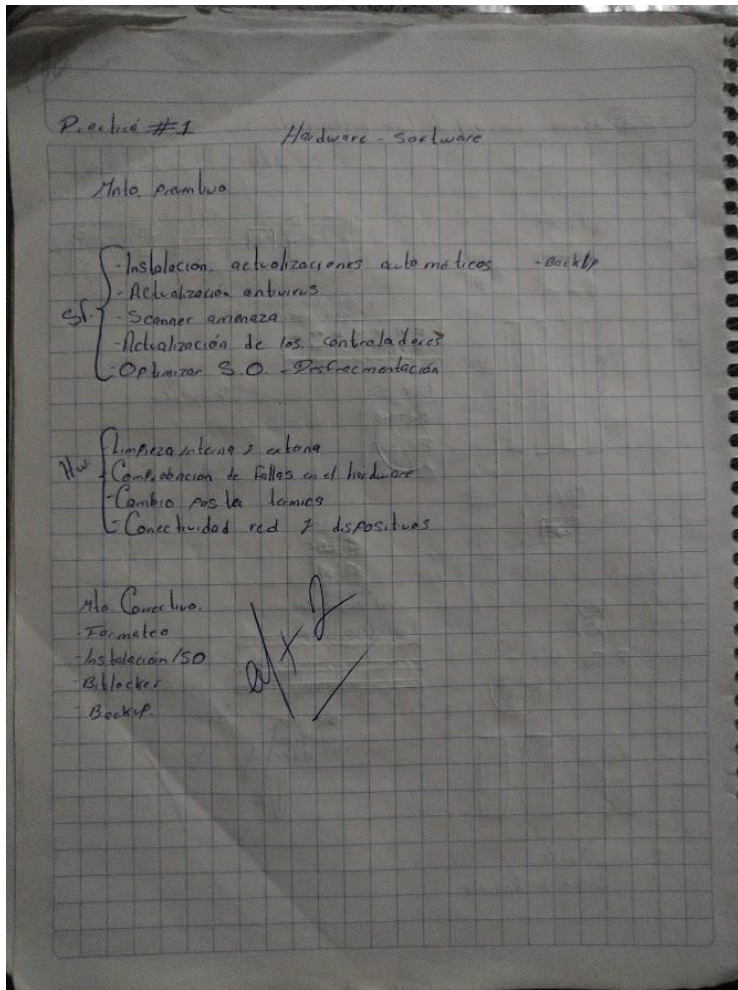 Practica #1 Hardware - Software
Mnto. Preventivo
- Instalacion actualizaciones automáticas - BackUp
- Actualización antivirus
Sf. - Scanner amenaza
- Actualización de los controladores
- Optimizar S.O. - Desfracmentación
- Limpieza interna y externa
Hw. - Comprobación de Fallas en el hardware
- Cambio pasta termica
- Conectividad red y dispositivos
Mto Correctivo.
- Formateo
- Instalación ISO
- Bitlocker
- Backup.